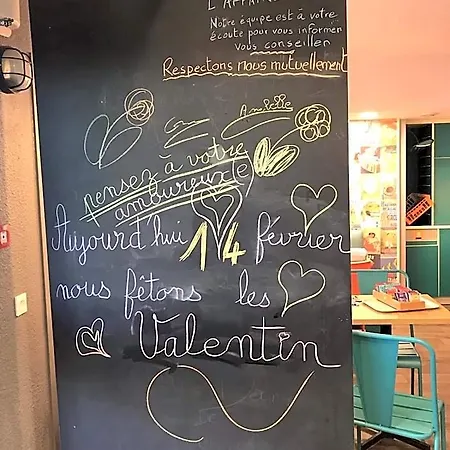 L'AFFAIRE
Notre équipe est à votre
écoute pour vous informer
vous conseiller
Respectons nous mutuellement
pensez à votre
amoureux(e)
Aujourd'hui 14 février
nous fêtons les
Valentin